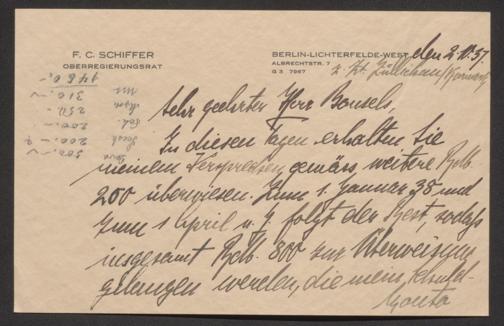 F. C. SCHIFFER
OBERREGIERUNGSRAT
BERLIN-LICHTERFELDE-WEST, den 2.10.37.
ALBRECHTSTR. 7
G 3 7967
z. Zt. Züllichau
Sehr geehrter Herr Bonsels,
In diesen Tagen erhalten Sie
meinem Versprechen gemäss, weitere Rmk.
200 überwiesen. Zum 1. Januar 38 und
zum 1 April u. J. folgt der Rest, sodass
insgesamt Rmk. 800 zur Überweisung
gelangen werden, die mein
Konto